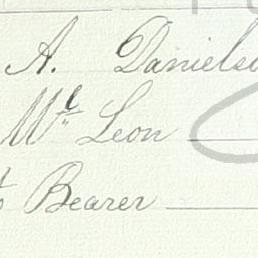 A. Daniels
Mt. Leon
Bearer